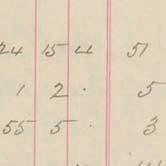 24 15 11 51
1 2 . 5
55 5 . 3